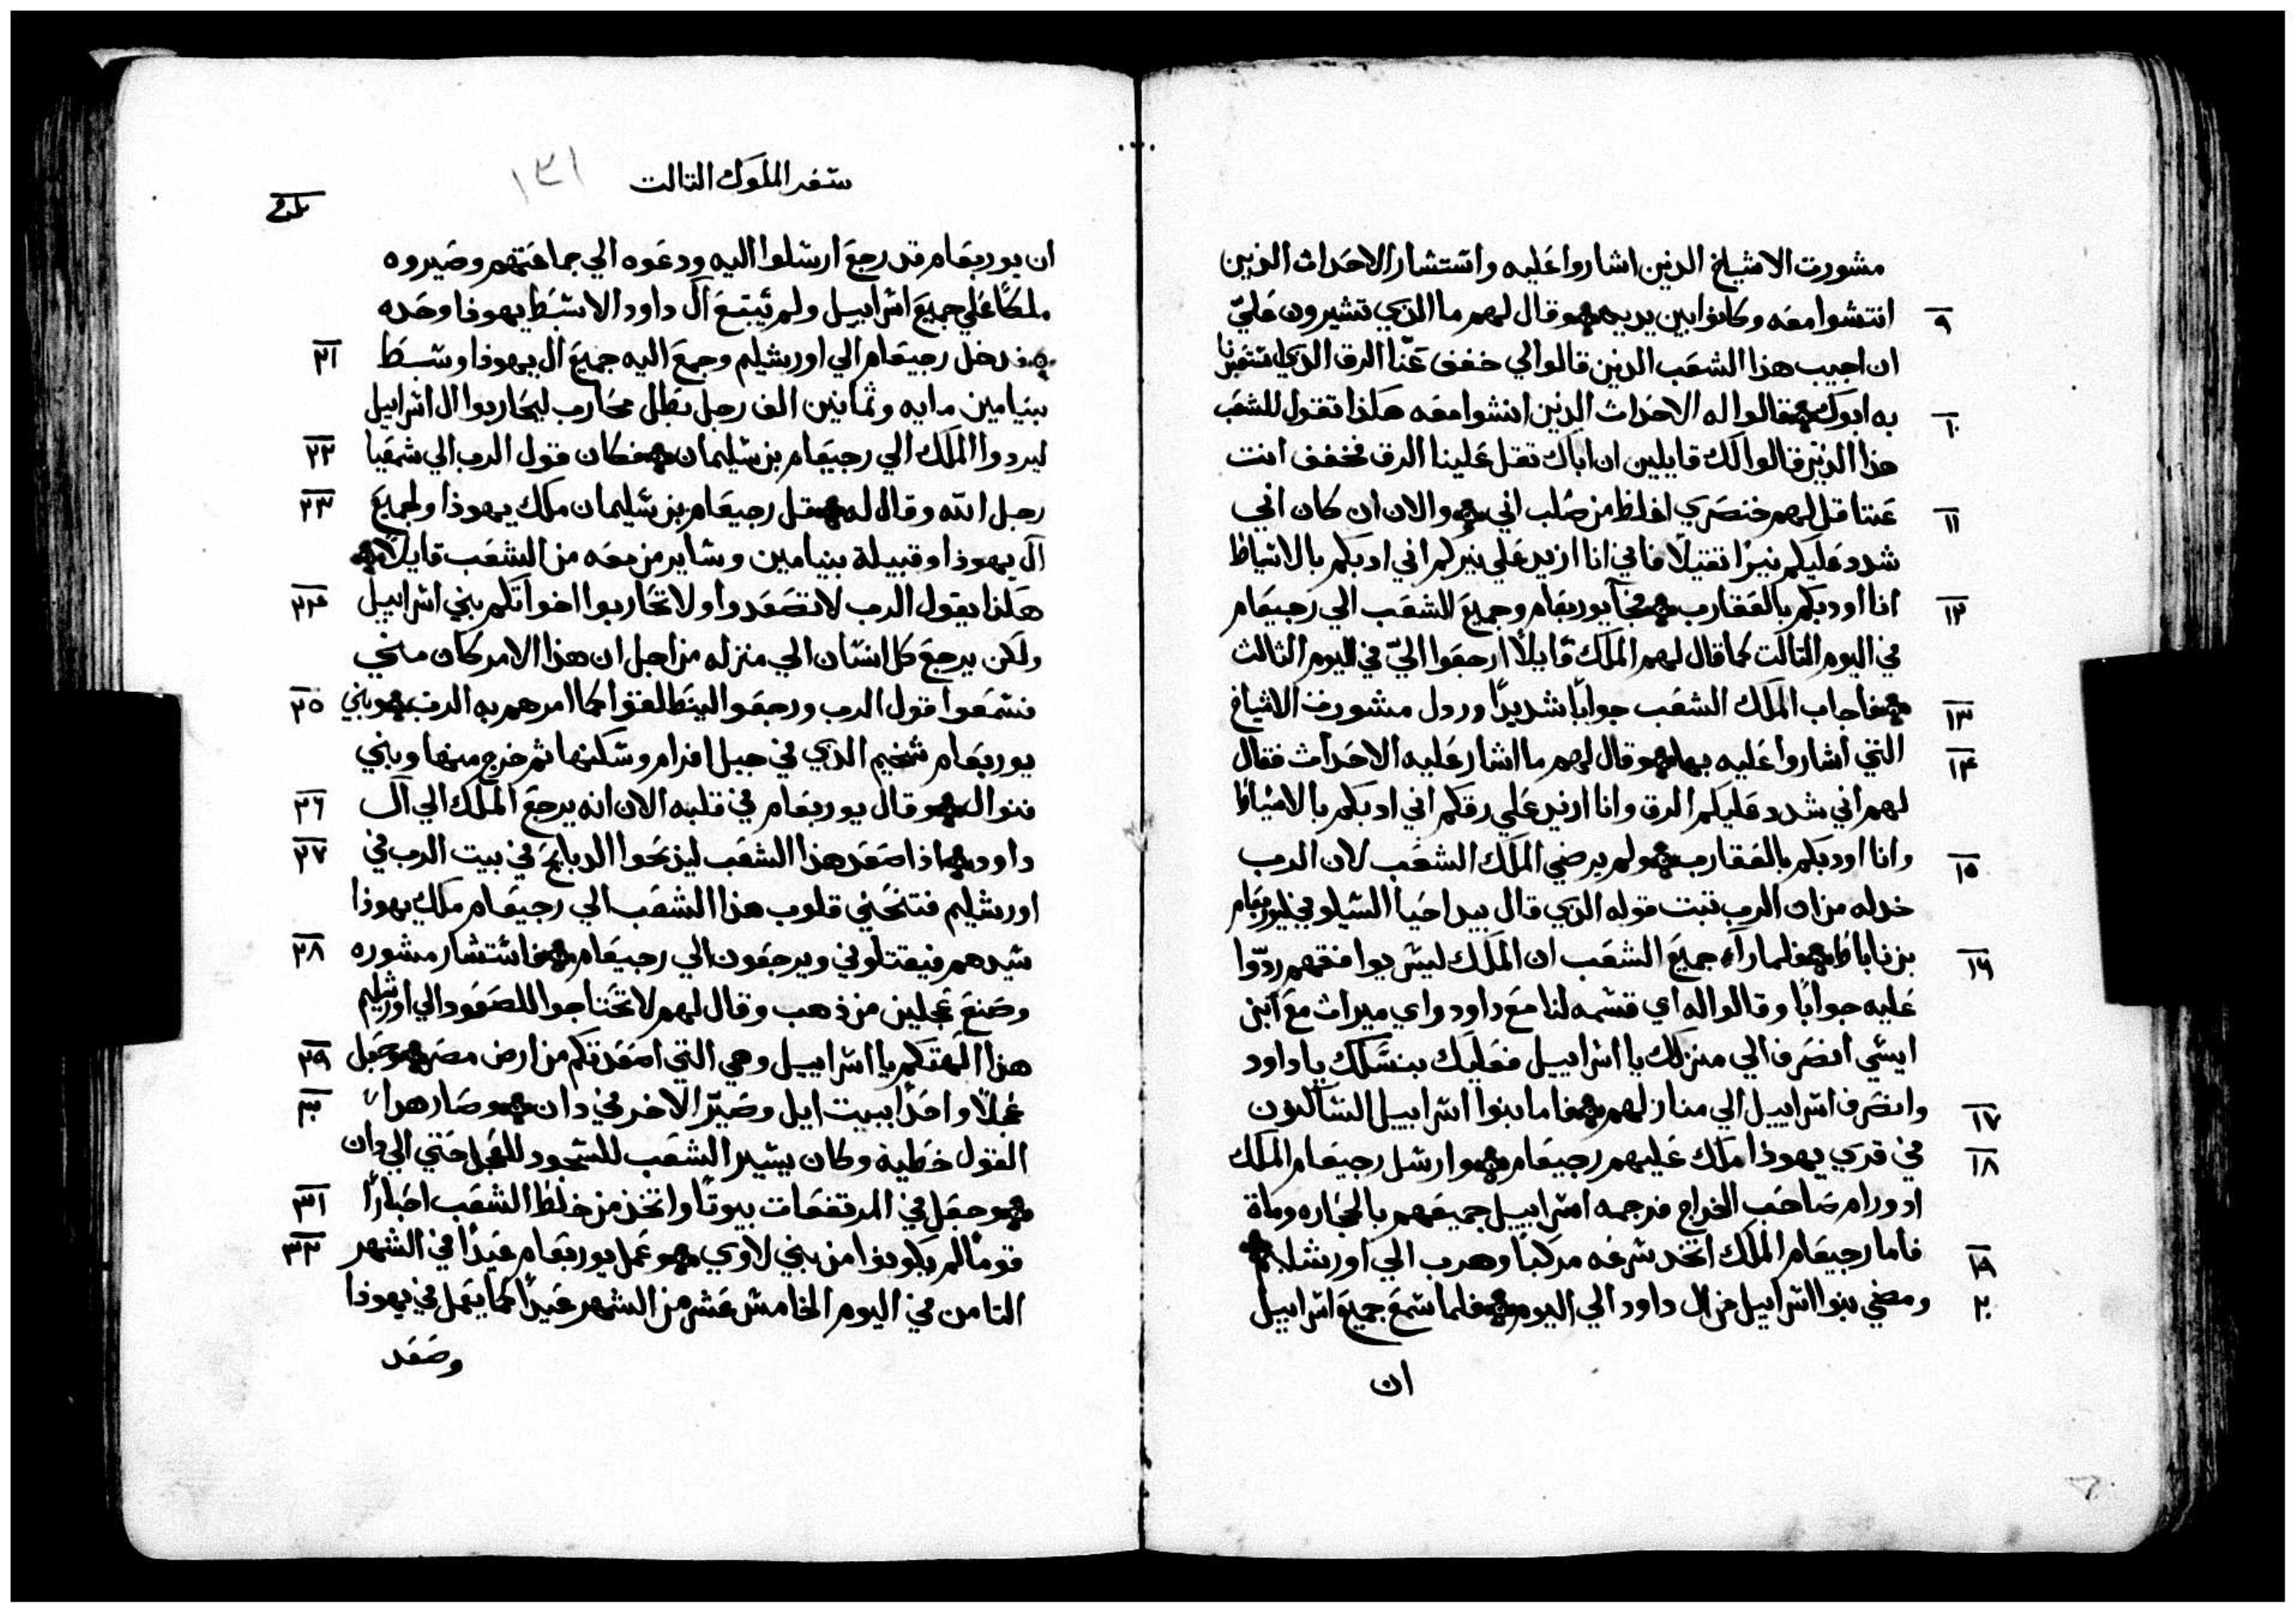 مشورت الاشياخ الدين اشاروا عليه واستشار الاحداث الذين
٩ انتشوا معه وكانوا بين يديه وقال لهم ما الذي تشيرون عليّ
ان اجيب هذا الشعب الدين قالوا لي خفف عنّا الرق الذي
١٠ به ابوك فقالوا له الاحداث الدين انتشوا معه هكذا تقول للشعب
هذا الدين قالوا لك قايلين ان اباك تقل علينا الرق فخفف انت
١١ عنا قل لهم خنصري اغلظ من صلب ابي والان ان كان ابي
شدد عليكم نيرًا تقيلًا فاني انا ازيد علي نيركم ابي ادبكم بالاسياط
١٢ انا اودبكم بالعقارب فجآ يوربعام وجميع الشعب الي رجيعام
في اليوم التالت كما قال لهم الملك قايلًا ارجعوا اليّ في اليوم الثالث
١٣ فاجاب الملك الشعب جوابًا شديدًا وردل مشورت الاشياخ
١٤ التي اشاروا عليه بها وقال لهم ما اشار عليه الاحداث فقال
لهم ابي شدد عليكم الرق وانا ازيد علي رقكم ابي ادبكم بالاسياط
١٥ وانا اودبكم بالعقارب ولم يرضي الملك الشعب لان الرب
خدله من ان الرب تبت قوله الذي قال بيد احيا السيلوني ليوربعام
١٦ بن ناباط فلما راء جميع الشعب ان الملك ليس يوافقهم ردّوا
عليه جوابًا وقالوا له اي قسمه لنا مع داود واي ميراث مع ابن
ايسي انصرف الي منزلك يا اسراييل فعليك بنسلك يا داود
١٧ وانصرف اسراييل الي منازلهم فاما بنوا اسراييل الساكنون
١٨ في قري يهوذا ملك عليهم رجيعام وارسل رجيعام الملك
ادورام صاحب الخراج فرجمه اسراييل جميعهم بالحجاره ومات
١٩ فاما رجيعام الملك اتخد سرعه مركبًا وهرب الي اورشليم
٢٠ ومضي بنوا اسراييل من ال داود الي اليوم فلما سمع جميع اسراييل
ان
سفر الملوك التالت ١٣١
ان يوربعام قد رجع ارسلوا اليه ودعوه الي جماعتهم وصيروه
ملكًا علي جميع اسراييل ولم يتبع آل داود الا سبط يهوذا وحده
٢١ فدخل رجيعام الي اورشليم وجمع اليه جميع ال يهوذا وسبط
بنيامين مايه وتمانين الف رجل بطل محارب ليحاربوا ال اسراييل
٢٢ ليردوا الملك الي رجيعام بن سليمان فكان قول الرب الي شمعيا
٢٣ رجل الله وقال له قل رجيعام بن سليمان ملك يهوذا ولجميع
آل يهوذا وقبيلة بنيامين وساير من معه من الشعب قايلا
٢٤ هكذا يقول الرب لا تصعدوا ولا تحاربوا اخواتكم بني اسراييل
ولكن يرجع كل انسان الي منزله من اجل ان هذا الامر كان مني
٢٥ فسمعوا قول الرب ورجعوا لينطلقوا كما امرهم به الرب وبني
يوربعام شخيم الذي في جبل افرام وسكنها ثم خرج منها وبني
٢٦ فنوال وقال يوربعام في قلبه الان انه يرجع الملك الي آل
٢٧ داود اذا صعد هذا الشعب ليذبحوا الدبايح في بيت الرب في
اورشليم فتنحني قلوب هذا الشعب الي رجيعام ملك يهوذا
٢٨ سيدهم فيقتلوني ويرجعون الي رجيعام فاستشار مشوره
وصنع عجلين من ذهب وقال لهم لا تحتاجوا للصعود الي اورشليم
٢٩ هذا الهتكم يا اسراييل وهي التي اصعدتكم من ارض مصر وجعل
٣٠ عجلًا واحدًا ببيت ايل وصيّر الاخر في دان وصار هدا
القول خطية وكان يسير الشعب للسجود للعجل حتي الي دان
٣١ وجعل في المرتفعات بيوتًا واتخذ من خلط الشعب احبارًا
٣٢ قومًا لم يكونوا من بني لاوي وعمل يوربعام عيدًا في الشهر
التامن في اليوم الخامس عشر من الشهر عيدًا كما يعمل في يهوذا
وصعد